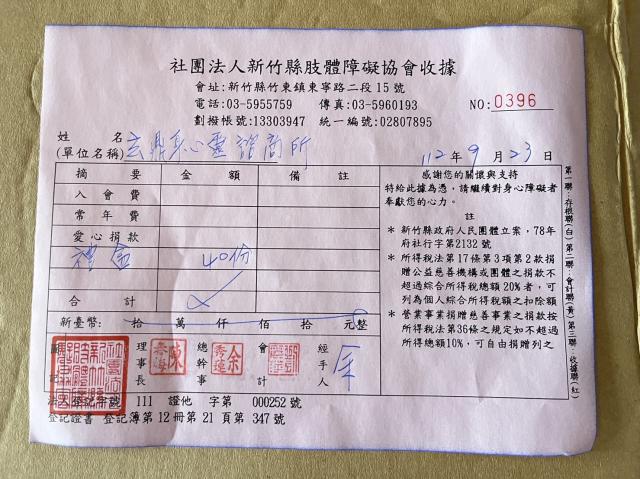 社團法人新竹縣肢體障礙協會收據
會址:新竹縣竹東鎮東寧路二段15號
電話:03-5955759 傳真:03-5960193
劃撥帳號:13303947 統一編號:02807895
NO:0396
姓 名
(單位名稱) 玄鼎身心靈諮商所
112年9月23日
摘 要 金 額 備 註
入 會 費
常 年 費
愛心捐款
禮金 40份
合 計
新臺幣: 拾 萬 仟 佰 拾 元整
感謝您的關懷與支持
特給此據為憑,請繼續對身心障礙者
奉獻您的心力。
註
* 新竹縣政府人民團體立案,78年
府社行字第2132號
* 所得稅法第17條第3項第2款捐
贈公益慈善機構或團體之捐款不
超過綜合所得稅總額20%者,可
列為個人綜合所得稅額之扣除額
* 營業事業捐贈慈善事業之捐款按
所得稅法第36條之規定如不超過
所得總額10%,可自由捐贈列之
第一聯:存根聯(白)第二聯:會計聯(黃)第三聯:收據聯(紅)
理事長 陳 總幹事 余秀蓮 會計 經手人 余
法人登記字號 111 證他 字第 000252號
登記證書 登記簿第12冊第21頁第347號